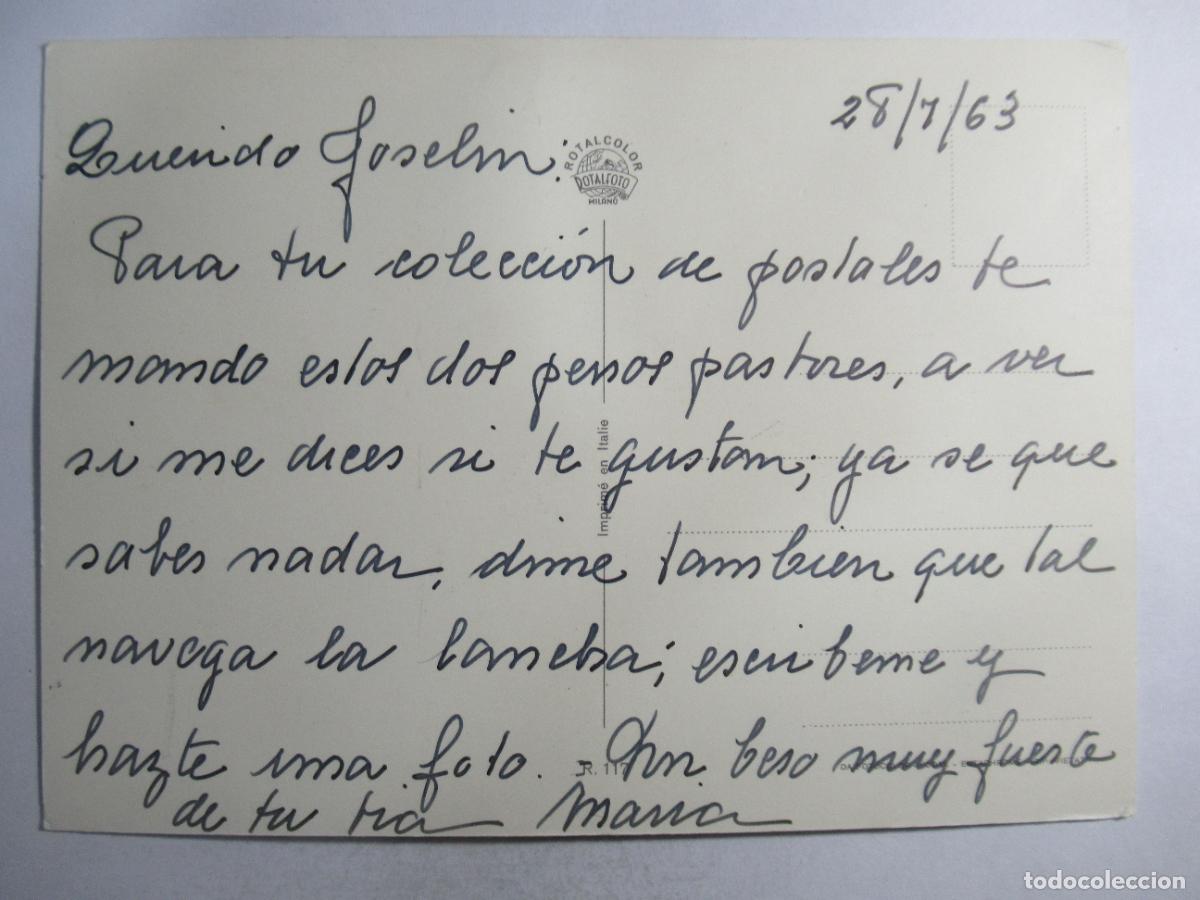 28/7/63
Querido Joselin:
ROTALCOLOR
ROTALFOTO
MILANO
Para tu colección de postales te
mando estos dos perros pastores, a ver
si me dices si te gustan; ya se que
sabes nadar, dime tambien que tal
navega la lancha; escribeme y
hazte una foto. - Un beso muy fuerte
de tu tia Maria
Imprimé en Italie
R. 117
todocoleccion